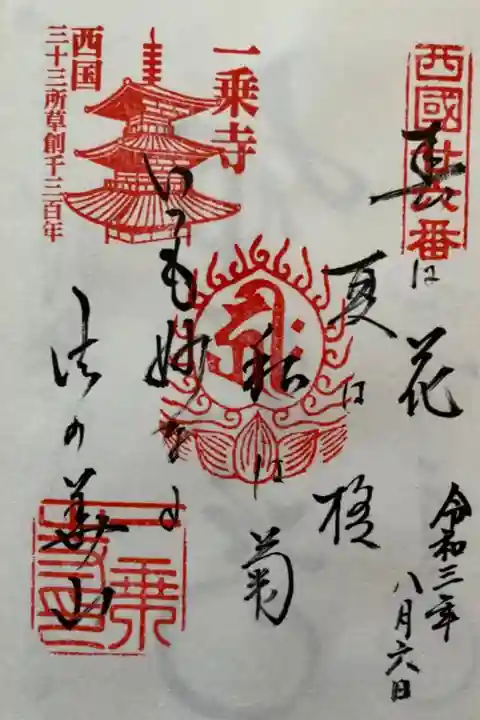 西國廿六番
春は花
夏は橘
秋は菊
いつも妙なる
法の華山
令和三年
八月六日
一乗寺
西国
三十三所草創千三百年